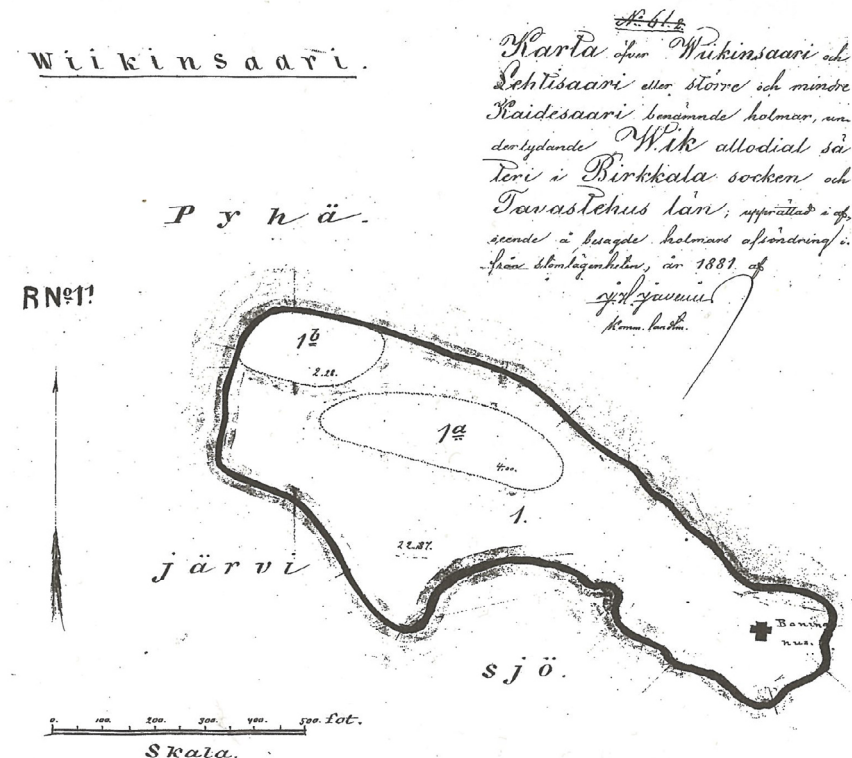 Wiikinsaari.
No. 61.a
Karta öfver Wiikinsaari och
Lehtisaari eller större och mindre
Kaidesaari benämnde holmar, un-
derlydande Wik allodial sä
teri i Birkkala socken och
Tavastehus län; upprättad i af-
seende å besagde holmars afsöndring i-
från stomlägenheten, år 1881 af
Komm. landtm.
Pyhä.
RNo11
1b
2.22.
1a
4.00.
1.
22.187.
järvi
sjö.
0. 100. 200. 300. 400. 500. fot.
Skala.